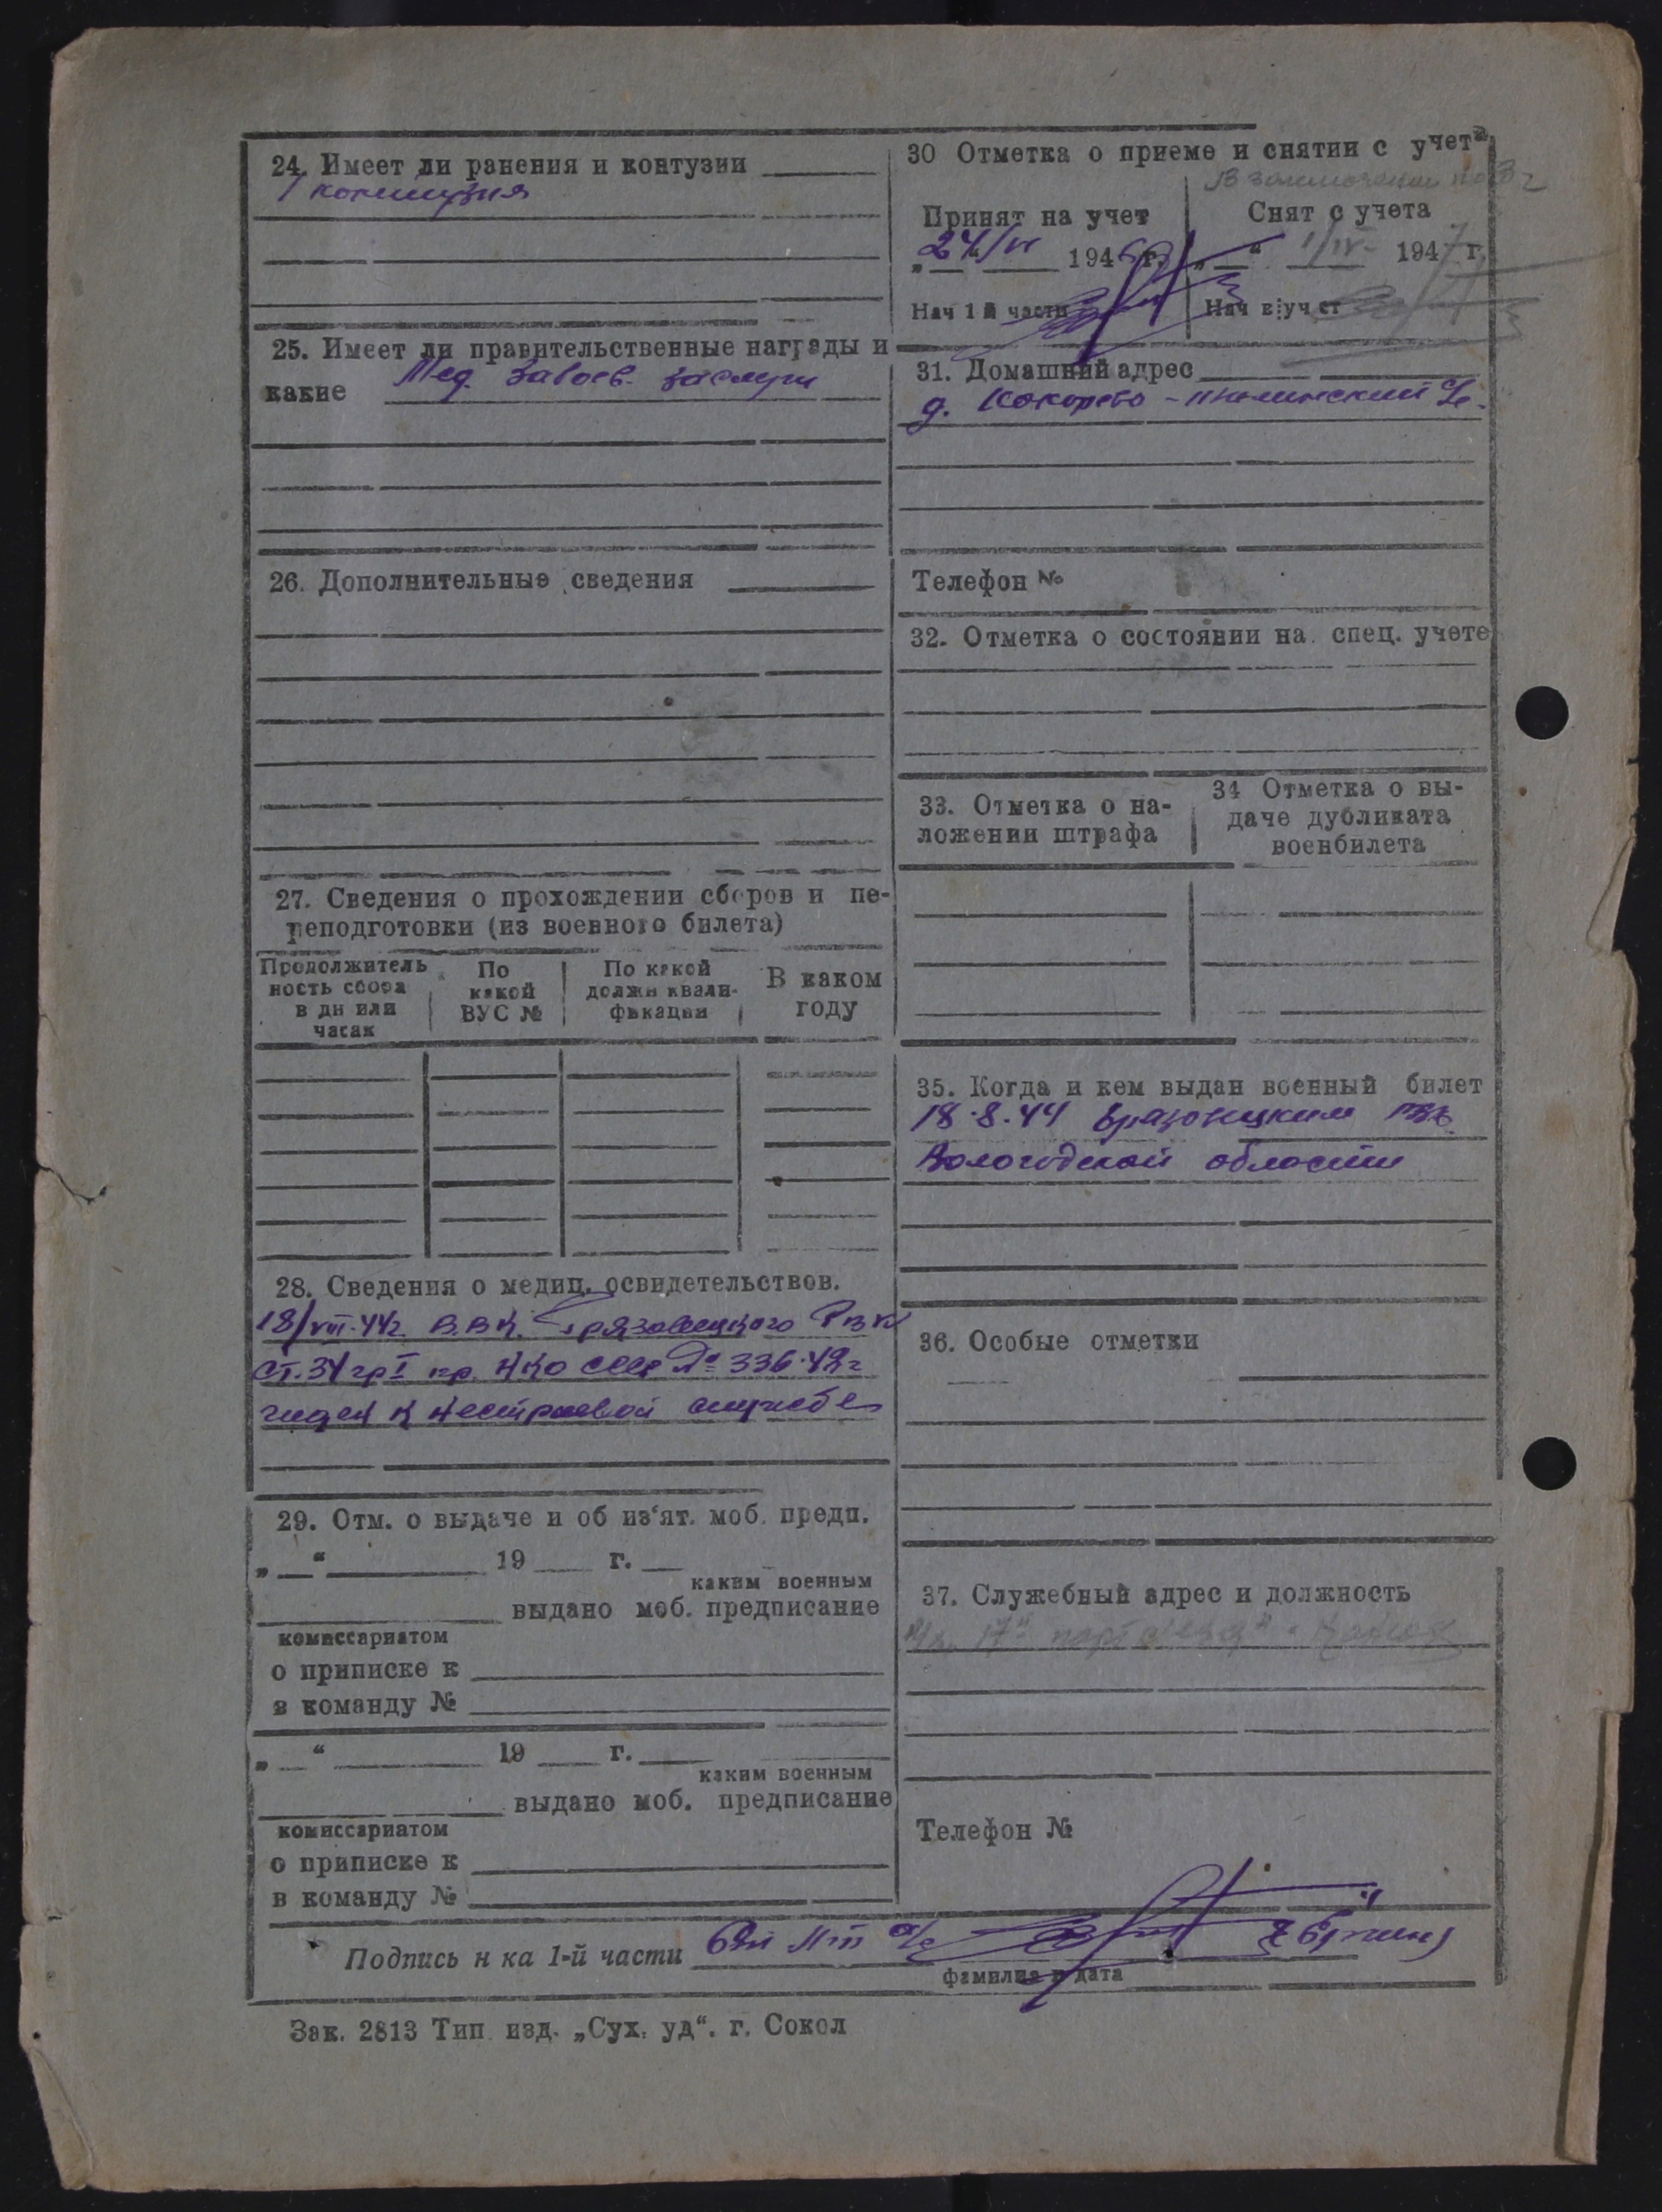 24. Имеет ли ранения и контузии
1 контузия
25. Имеет ли правительственные награды и
какие Мед. За боев. заслуги
26. Дополнительные сведения
27. Сведения о прохождении сборов и пе-
реподготовки (из военного билета)
Продолжитель
ность сбора
в дн или
часах
По
какой
ВУС №
По какой
должн квали-
фикации
В каком
году
28. Сведения о медиц. освидетельствов.
18/VIII-44г. В.В.К. Грязовецкого РВК
ст. 34 гр I пр. НКО СССР № 336-42г
годен к нестроевой службе
29. Отм. о выдаче и об из'ят. моб. предп.
„ “ 19 г.
каким военным
выдано моб. предписание
комиссариатом
о приписке к
в команду №
„ “ 19 г.
каким военным
выдано моб. предписание
комиссариатом
о приписке к
в команду №
30 Отметка о приеме и снятии с учета
В заключении
Принят на учет
„24“/VI 194 г.
Нач 1й части
Снят с учета
„ “ 1/IV- 1947 г.
Нач в/уч ст
31. Домашний адрес
д. Кокорево
Телефон №
32. Отметка о состоянии на спец. учете
33. Отметка о на-
ложении штрафа
34 Отметка о вы-
даче дубликата
военбилета
35. Когда и кем выдан военный билет
18.8.44 Грязовецким РВК
Вологодской области
36. Особые отметки
37. Служебный адрес и должность
17 партсъезд
Телефон №
Подпись н ка 1-й части
фамилия и дата
Зак. 2813 Тип. изд. „Сух. уд“. г. Сокол